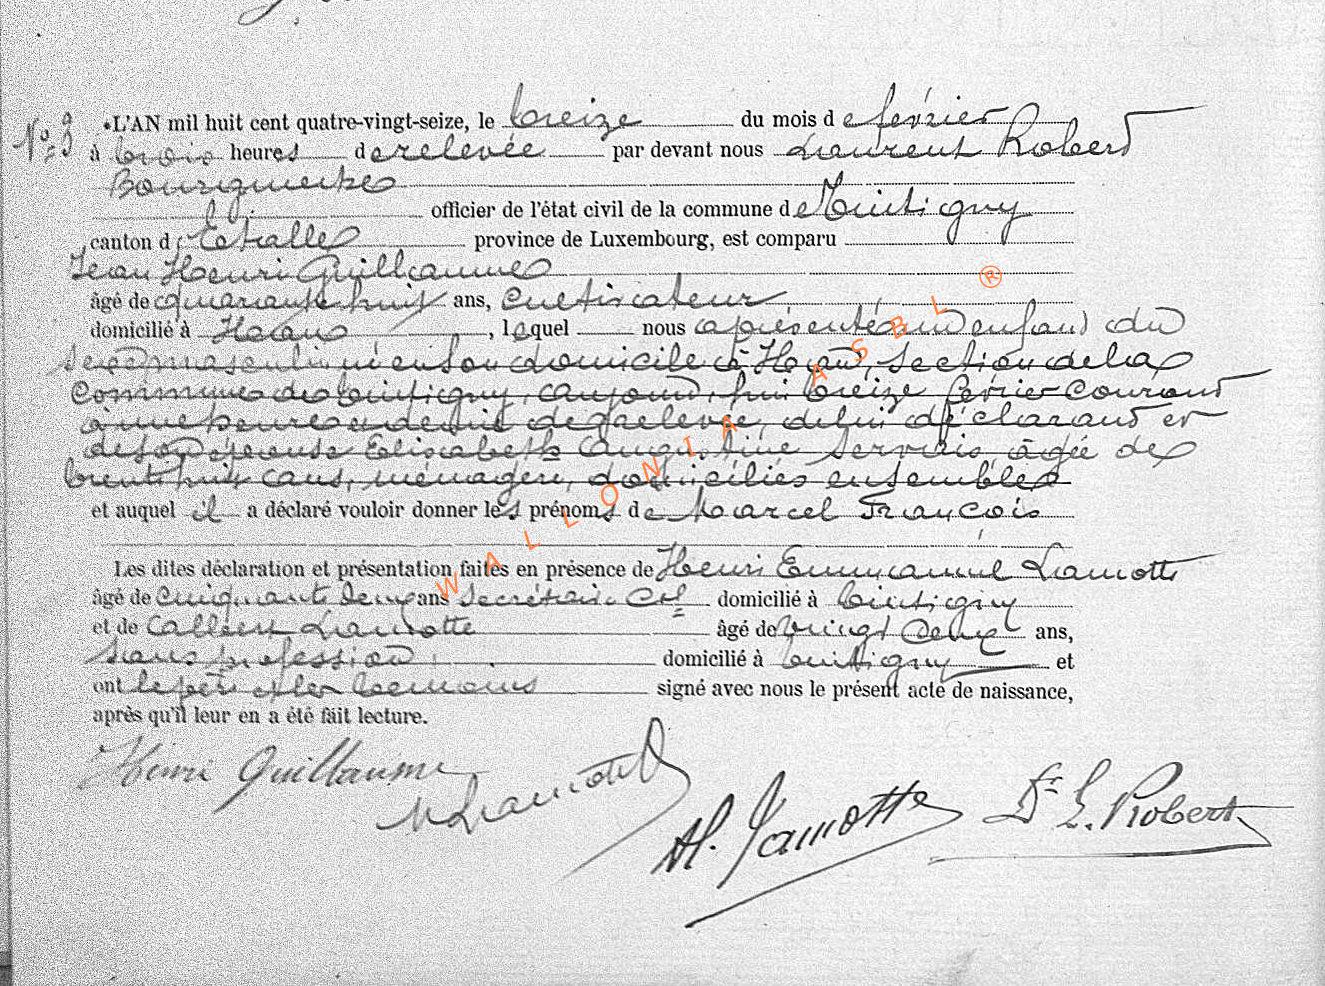 N° 3
L'AN mil huit cent quatre-vingt-seize, le treize du mois de février
à trois heures de relevée par devant nous Laurent Robert
Bourgmestre
officier de l'état civil de la commune de Tintigny
canton d'Etalle province de Luxembourg, est comparu
Jean Henri Guillaume
âgé de quarante huit ans, cultivateur
domicilié à Han, lequel nous a présenté un enfant du
sexe masculin né en son domicile à Han, section de la
commune de Tintigny, aujourd'hui treize février courant
à une heure et demie de relevée, de lui déclarant et
de son épouse Elisabeth Augustine Servais âgée de
trente huit ans, ménagère, domiciliés ensemble
et auquel il a déclaré vouloir donner les prénoms de Marcel François
Les dites déclaration et présentation faites en présence de Henri Emmanuel Lamotte
âgé de cinquante deux ans secrétaire Cal domicilié à Tintigny
et de Lamotte âgé de vingt deux ans,
sans profession domicilié à Tintigny et
ont le père et les témoins signé avec nous le présent acte de naissance,
après qu'il leur en a été fait lecture.
Henri Guillaume
Lamotte
H. Lamotte
Dr L. Robert
WALLONIA ASBL ®